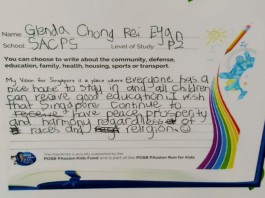 Name: Glenda Chong Rei En
School: SACPS Level of Study: P2
You can choose to write about the community, defense,
education, family, health, housing, sports or transport.
My Vision for Singapore is a place where everyone has a
nice house to stay in and all children
can receive good education. I wish
that Singapore continue to
have peace, prosperity
and harmony regardless of
races and religion.
POSB PAssion Kids Fund and is part of the POSB PAssion Run for Kids